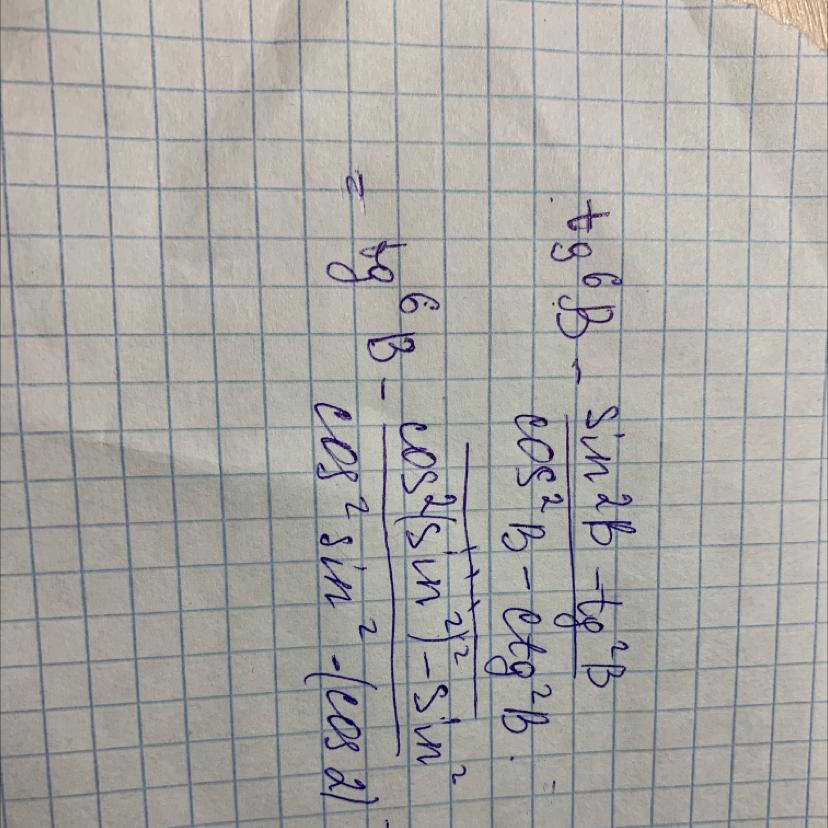 tg⁶B - sin²B - tg²B
cos²B - ctg²B . =
= tg⁶B - cos²(sin²)² - sin²
cos² sin² - (cos 2)